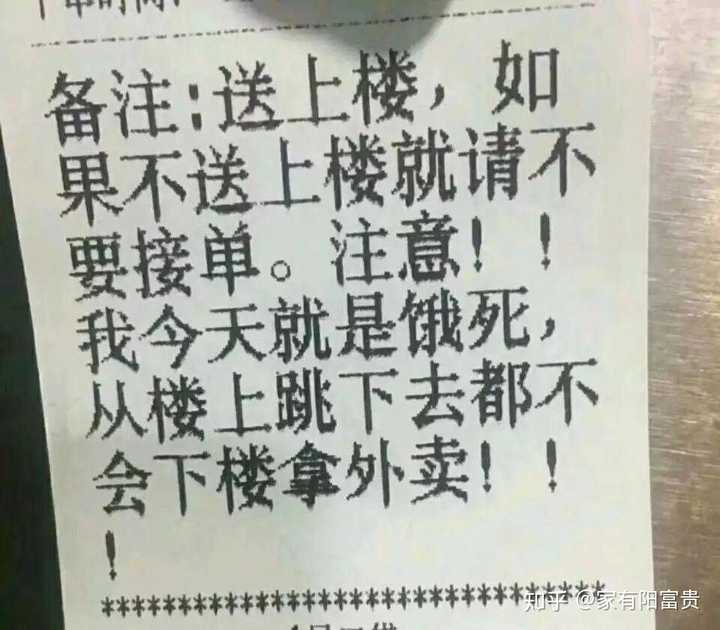 备注:送上楼，如
果不送上楼就请不
要接单。注意！！
我今天就是饿死，
从楼上跳下去都不
会下楼拿外卖！！
！
**************************************
知乎 @家有阳富贵